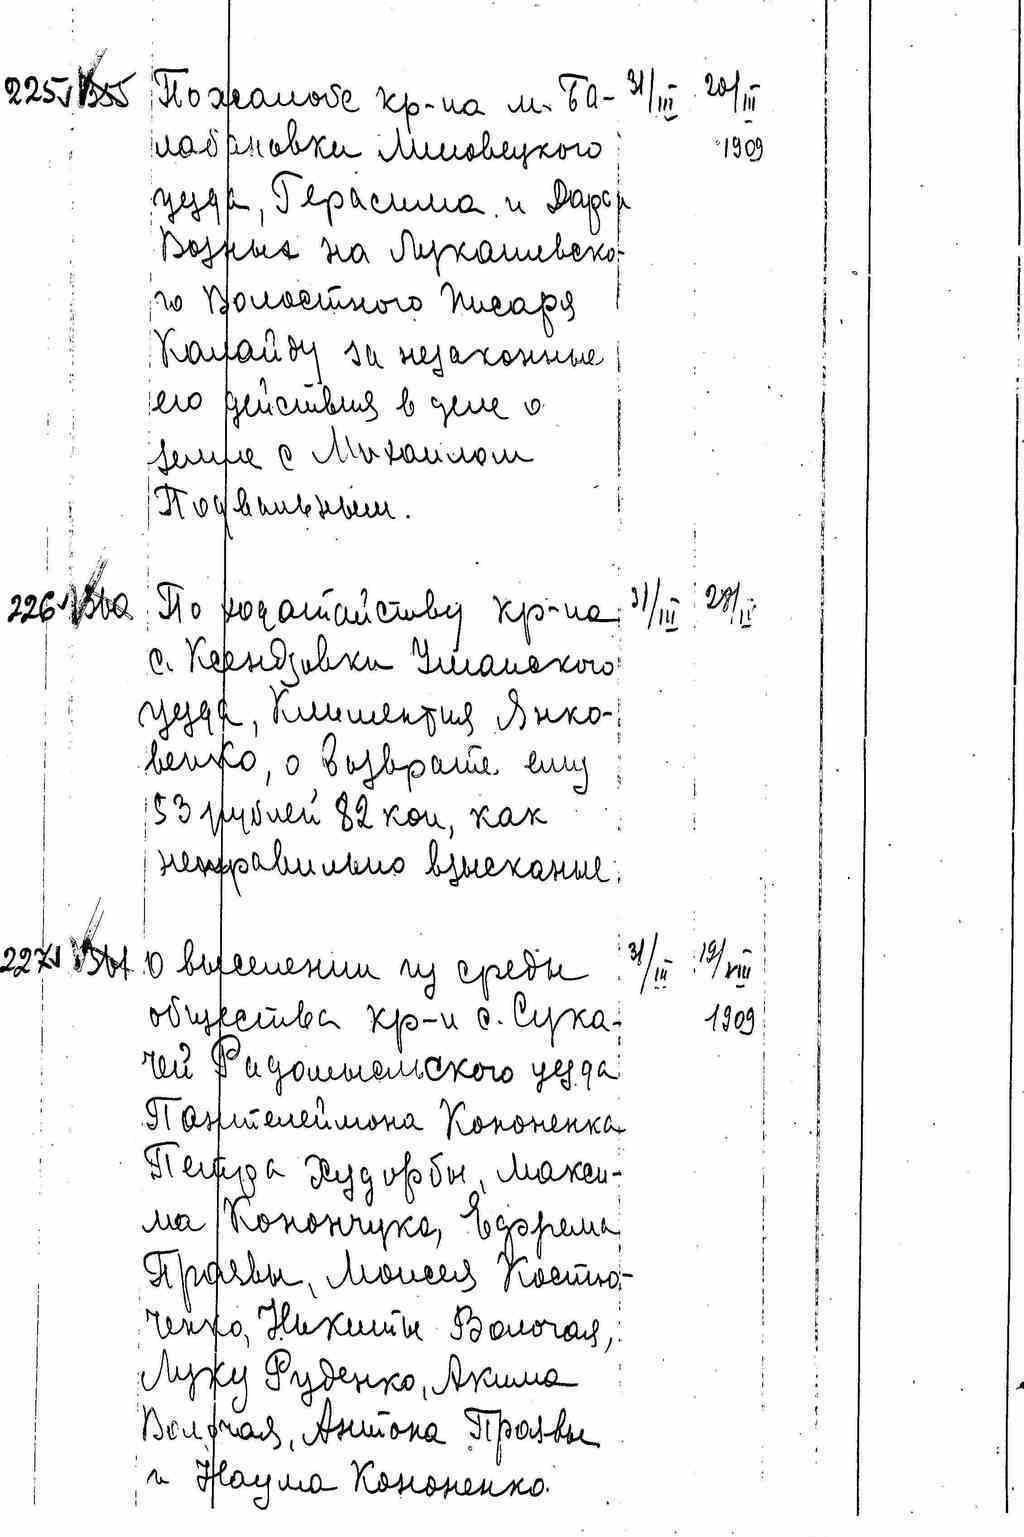 225 355 По жалобе кр-на м. Ба- 31/III 20/III
лабановки Липовецкого 1909
уезда, Герасима и Дарьи
Возных на Лукашевско-
го Волостного Писаря
Калайду за незаконные
его действия в деле о
земле с Михаилом
Подвальным.
226 По ходатайству кр-на 31/III
с. Ксендзовки Уманского
уезда, Климентия Янко-
венко, о возврате ему
53 рублей 82 коп, как
неправильно взысканные.
227 О выселении из среды 31/III 19/VIII
общества кр-н с. Сука- 1909
чей Радомысльского уезда
Пантелеймона Кононенка
Петра Худорбы, Макси-
ма Конончука, Ефрема
Проявы, Моисея Костю-
ченко, Никиты Волочая,
Луку Руденко, Акима
Волочая, Антона Проявы
и Наума Кононенко.